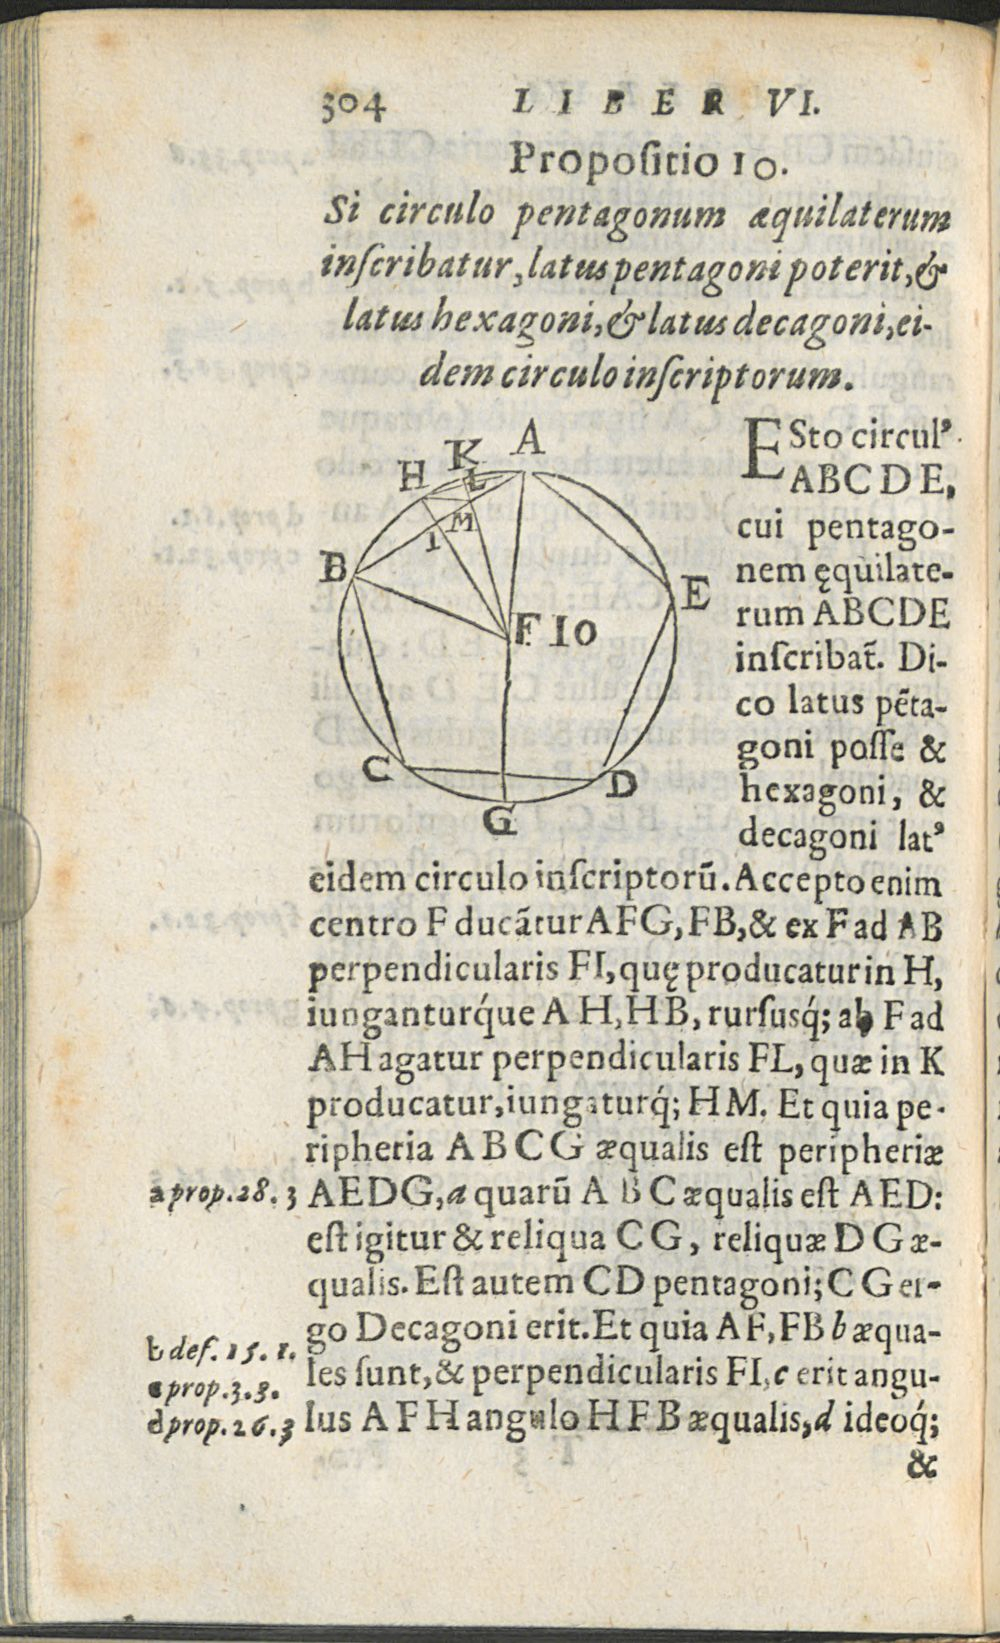 304 LIBER VI.
Propositio 10.
Si circulo pentagonum æquilaterum
inſcribatur, latus pentagoni poterit, &
latus hexagoni, & latus decagoni, ei-
dem circulo inſcriptorum.
A
K
H
L
M
I
B
E
F 10
C
D
G
ESto circulꝰ
ABCDE,
cui pentago-
nem ęquilate-
rum ABCDE
inſcribat̃. Di-
co latus pẽta-
goni poſſe &
hexagoni, &
decagoni latꝰ
eidem circulo inſcriptorũ. Accepto enim
centro F ducãtur AFG, FB, & ex F ad AB
perpendicularis FI, quę producatur in H,
iunganturq́ue AH, HB, rurſusq́; ab F ad
AH agatur perpendicularis FL, quæ in K
producatur, iungaturq́; HM. Et quia pe-
ripheria ABCG æqualis eſt peripheriæ
a prop. 28. 3 AEDG, a quarũ ABC æqualis eſt AED:
eſt igitur & reliqua CG, reliquæ DG æ-
qualis. Eſt autem CD pentagoni; CG er-
go Decagoni erit. Et quia AF, FB b æqua-
b def. 15. 1.
les ſunt, & perpendicularis FI, c erit angu-
c prop. 3. 3.
d prop. 26. 3 lus AFH angulo HFB æqualis, d ideoq́;
&